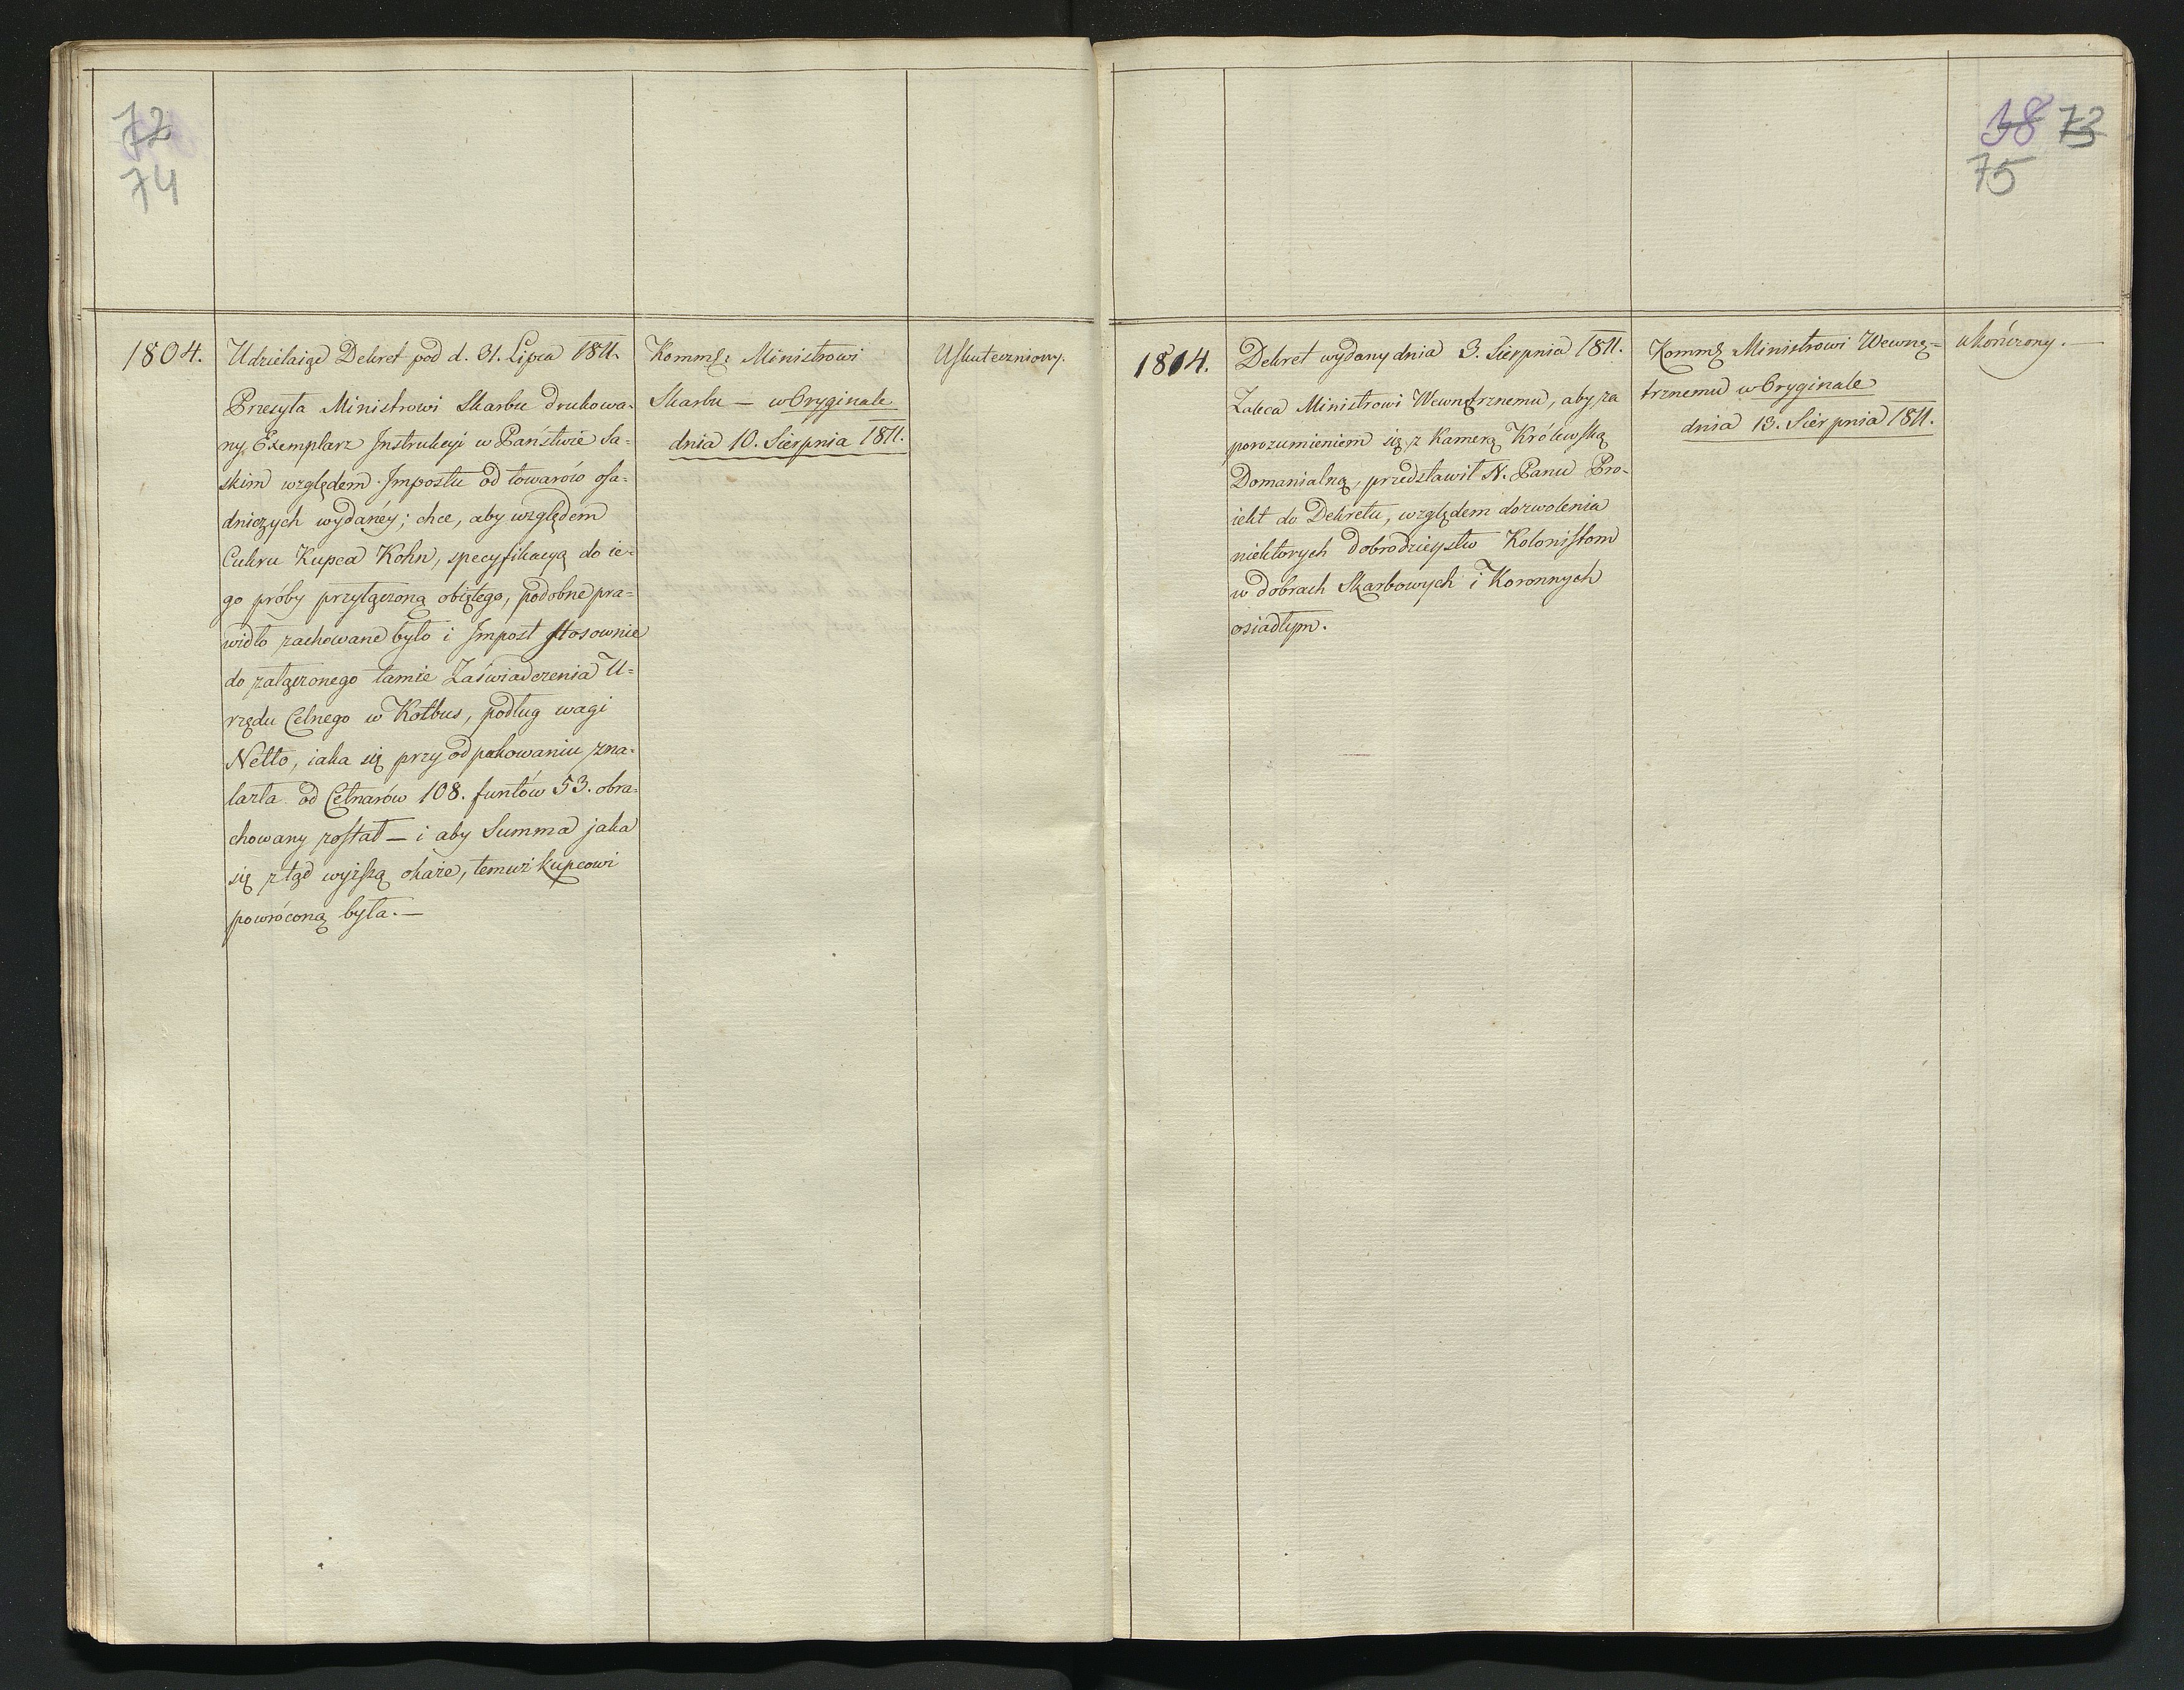 72
74
1804.
Udzielaiąc Dekret pod d. 31. Lipca 1811.
Przesyła Ministrowi Skarbu drukowa-
ny Exemplarz Instrukcyi w Państwie Sa-
skim względem Impostu od towarów osa-
dniczych wydanéy; chce, aby względem
Cukru Kupca Kohn, specyfikacyą do ie-
go próby przyłączoną obiętego, podobne pra-
widło zachowane było i Impost stosownie
do załączonego tamże Zaświadczenia U-
rzędu Celnego w Kotbus, podług wagi
Netto, iaka się przy odpakowaniu zna-
lazła od Cetnarów 108. funtów 53. obra-
chowany został — i aby Summa jaka
się ztąd wyższą okaże, temuż kupcowi
powróconą była. —
Komm: Ministrowi
Skarbu — w Oryginale
dnia 10. Sierpnia 1811.
Uskuteczniony.
38 73
75
1814.
Dekret wydany dnia 3. Sierpnia 1811.
Zaleca Ministrowi Wewnętrznemu, aby za
porozumieniem się z Kamerą Królewską
Domanialną, przedstawił N. Panu Pro-
iekt do Dekretu, względem dozwolenia
niektorych dobrodzieystw Kolonistom
w dobrach Skarbowych i Koronnych
osiadłym.
Komm: Ministrowi Wewnę-
trznemu w Oryginale
dnia 13. Sierpnia 1811.
ukończony. —